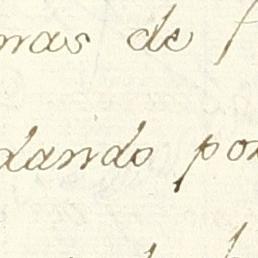 mas de
dando por